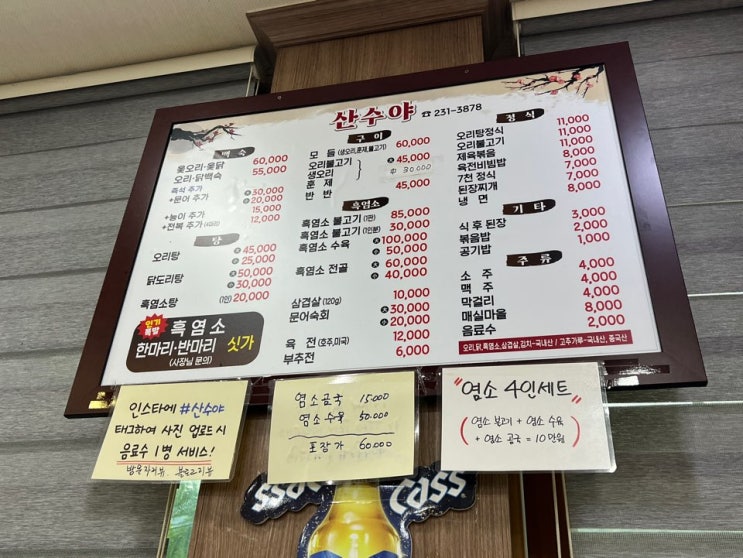 산수야 ☎ 231-3878
백숙
옻오리·옻닭 60,000
오리·닭백숙 55,000
흑석 추가
+문어 추가 대 30,000
소 20,000
+능이 추가 15,000
+전복 추가 (4마리) 12,000
탕
오리탕 대 45,000
소 25,000
닭도리탕 대 50,000
소 30,000
흑염소탕 (1인) 20,000
인기폭발
흑염소
한마리·반마리 싯가
(사장님 문의)
구이
모듬 (생오리,훈제,불고기) 60,000
오리불고기
생오리 대 45,000
훈제 中 30,000
반반 45,000
흑염소
흑염소 불고기 (1판) 85,000
흑염소 불고기 (1인분) 30,000
흑염소 수육 대 100,000
소 50,000
흑염소 전골 대 60,000
소 40,000
삼겹살 (120g) 10,000
문어숙회 대 30,000
소 20,000
육전 (호주,미국) 12,000
부추전 6,000
정식
오리탕정식 11,000
오리불고기 11,000
제육볶음 11,000
육전비빔밥 8,000
7천 정식 7,000
된장찌개 7,000
냉면 8,000
기타
식 후 된장 3,000
볶음밥 2,000
공기밥 1,000
주류
소주 4,000
맥주 4,000
막걸리 4,000
매실마을 8,000
음료수 2,000
오리,닭,흑염소,삼겹살,김치-국내산 / 고추가루-국내산, 중국산
인스타에 #산수야
태그하여 사진 업로드 시
음료수 1병 서비스!
방문자리뷰 블로그리뷰
염소곰국 15000
염소수육 50.000
포장가 60.000
"염소 4인세트"
(염소 불고기 + 염소 수육
+ 염소 곰국 = 10만원)
Cass